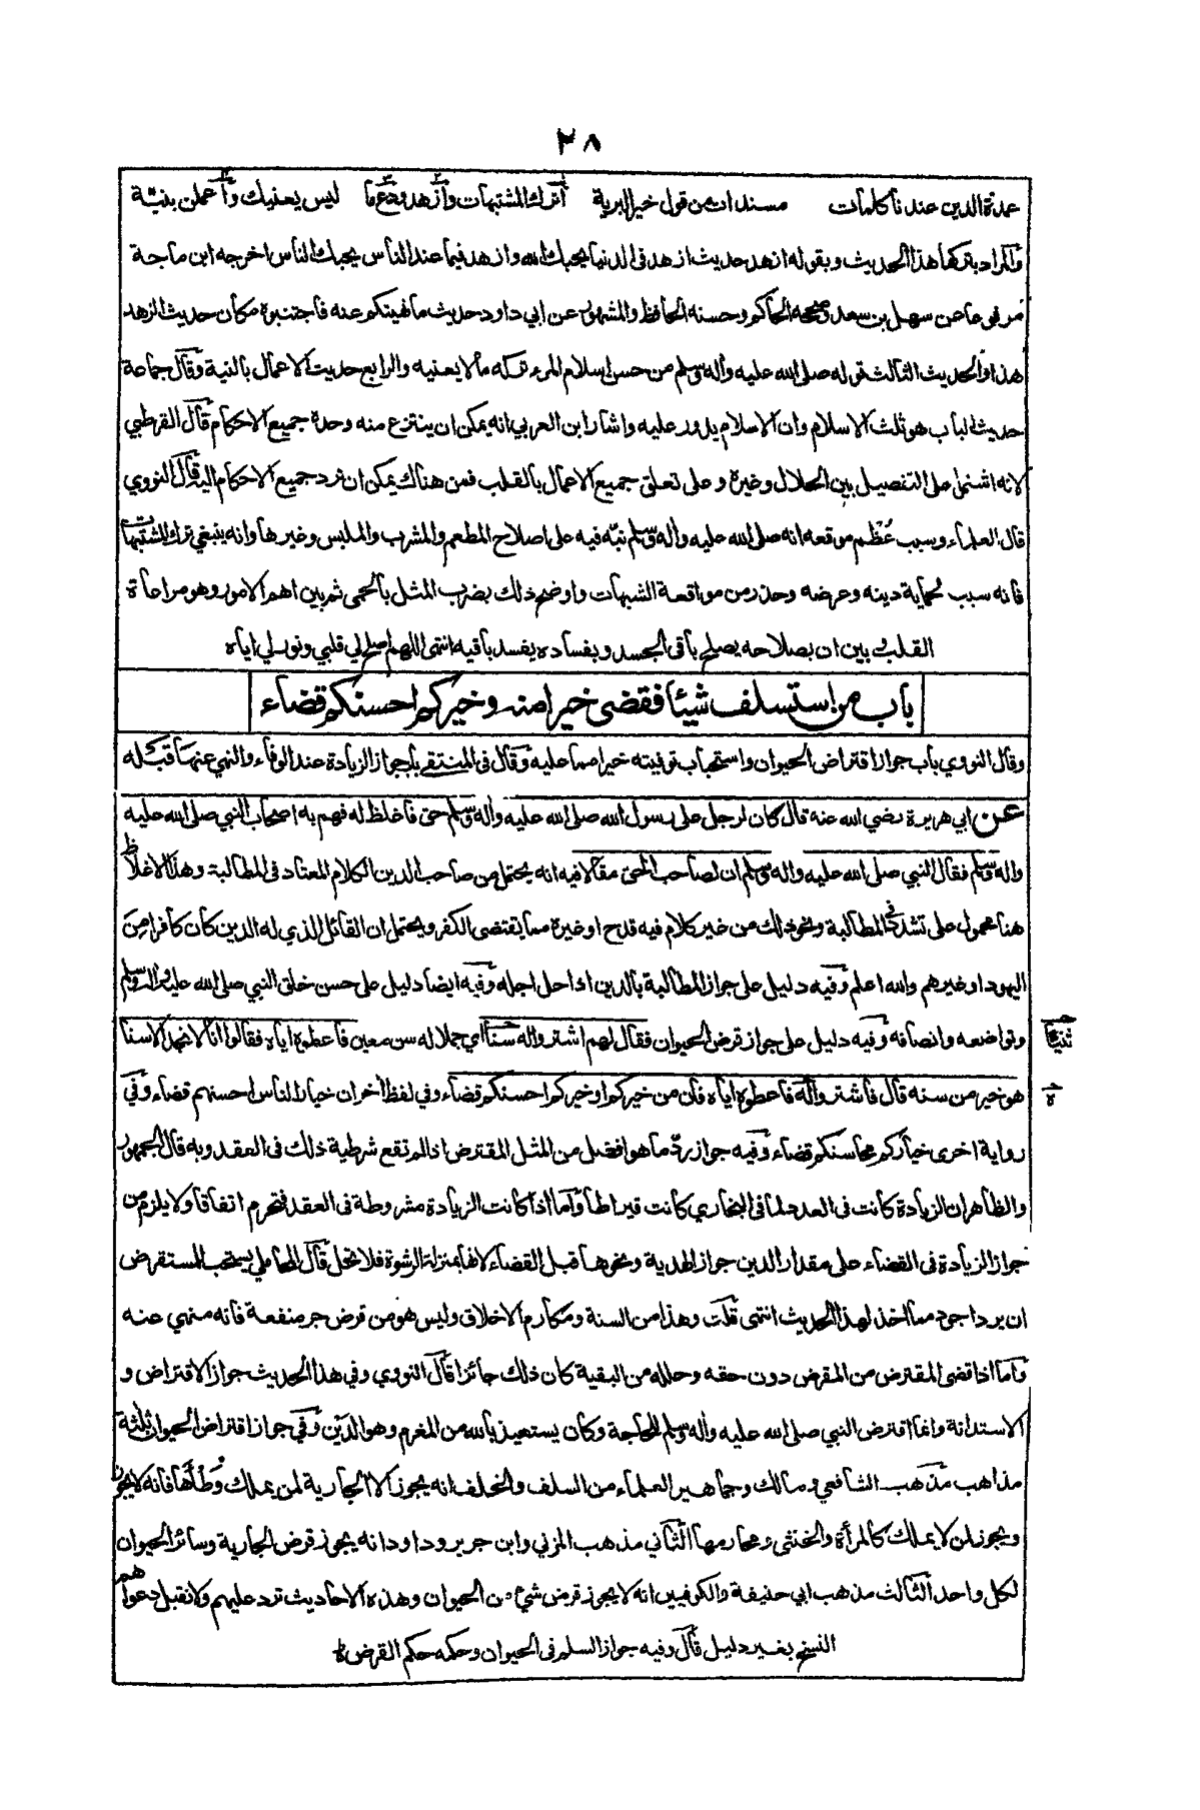 ٢٨
عمدة الدين عندنا كلمات مسندات من قول خير البرية أترك المشتبهات وازهد ودع ما ليس يعنيك واعملن بنيّة
والمراد بتركها هذا الحديث وبقوله ازهد حديث ازهد فى الدنيا يحبك الله وازهد فيما عند الناس يحبك الناس اخرجه ابن ماجة
مرفوعا عن سهل بن سعد وصححه الحاكم وحسنه الحافظ والمشهور عن ابي داود حديث ما نهيتكم عنه فاجتنبوه مكان حديث الزهد
هذا والحديث الثالث قوله صلى الله عليه واله وسلم من حسن اسلام المرء تركه ما لا يعنيه والرابع حديث الاعمال بالنية وقال جماعة
حديث الباب هو ثلث الاسلام وان الاسلام يدور عليه واشار ابن العربي انه يمكن ان ينتزع منه وحده جميع الاحكام قال القرطبي
لانه اشتمل على التفصيل بين الحلال وغيره وعلى تعلق جميع الاعمال بالقلب فمن هناك يمكن ان ترد جميع الاحكام اليه قال النووي
قال العلماء وسبب عُظْم موقعه انه صلى الله عليه واله وسلم نبّه فيه على اصلاح المطعم والمشرب والملبس وغيرها وانه ينبغي ترك المشتبهات
فانه سبب لحماية دينه وعرضه وحذر من مواقعة الشبهات واوضح ذلك بضرب المثل بالحمى ثم بين اهم الامور وهو مراعاة
القلب وبين ان بصلاحه يصلح باقى الجسد وبفساده يفسد باقيه انتهى اللهم اصلح لي قلبي ونور لي اياه
باب من استسلف شيئا فقضى خيرا منه وخيركم احسنكم قضاء
وقال النووي باب جواز اقتراض الحيوان واستحباب توفيته خيرا مما عليه وقال فى المنتقى باب جواز الزيادة عند الوفاء والنهي عنها قبله
عن ابي هريرة رضي الله عنه قال كان لرجل على رسول الله صلى الله عليه واله وسلم حق فاغلظ له فهم به اصحاب النبي صلى الله عليه
واله وسلم فقال النبي صلى الله عليه واله وسلم ان لصاحب الحق مقالا فيه انه يحتمل من صاحب الدين الكلام المعتاد فى المطالبة وهذا الاغلاظ
هنا محمول على تشدد فى المطالبة ونحو ذلك من غير كلام فيه قدح او غيره مما يقتضى الكفر ويحتمل ان القائل الذي له الدين كان كافرا من
اليهود او غيرهم والله اعلم وفيه دليل على جواز المطالبة بالدين اذا حل اجله وفيه ايضا دليل على حسن خلق النبي صلى الله عليه واله وسلم
وتواضعه وانصافه وفيه دليل على جواز قرض الحيوان فقال لهم اشتروا له سنا اي جملا له سن معين فاعطوه اياه فقالوا انا لا نجد الا سنا
هو خير من سنه قال فاشتروا له فاعطوه اياه فان من خيركم او خيركم احسنكم قضاء وفي لفظ أخر ان خيار الناس احسنهم قضاء وفي
رواية اخرى خياركم محاسنكم قضاء وفيه جواز ردّ ما هو افضل من المثل المقترض اذا لم تقع شرطية ذلك فى العقد وبه قال الجمهور
والظاهر ان الزيادة كانت فى العدد لما فى البخاري كانت قيراطا واما اذا كانت الزيادة مشروطة فى العقد فتحرم اتفاقا ولا يلزم من
جواز الزيادة فى القضاء على مقدار الدين جواز الهدية ونحوها قبل القضاء لانها بمنزلة الرشوة فلا تحل قال المحاملي يستحب للمستقرض
ان يرد اجود مما اخذ لهذا الحديث انتهى قلت وهذا من السنة ومكارم الاخلاق وليس هو من قرض جر منفعة فانه منهي عنه
واما اذا قضى المقترض من المقرض دون حقه وحلله من البقية كان ذلك جائزا قال النووي وفي هذا الحديث جواز الاقتراض و
الاستدانة وانما اقترض النبي صلى الله عليه واله وسلم للحاجة وكان يستعيذ بالله من المغرم وهو الدَّيْن وفي جواز اقتراض الحيوان ثلثة
مذاهب مذهب الشافعي ومالك وجماهير العلماء من السلف والخلف انه يجوز الا الجارية لمن يملك وَطْأَها فانه لا يجوز
ويجوز لمن لا يملك كالمرأة والخنثى ومحارمها الثاني مذهب المزني وابن جرير وداود انه يجوز قرض الجارية وسائر الحيوان
لكل واحد الثالث مذهب ابي حنيفة والكوفيين انه لا يجوز قرض شيء من الحيوان وهذه الاحاديث ترد عليهم ولا تقبل دعواهم
النسخ بغير دليل قال وفيه جواز السلم فى الحيوان وحكمه حكم القرض